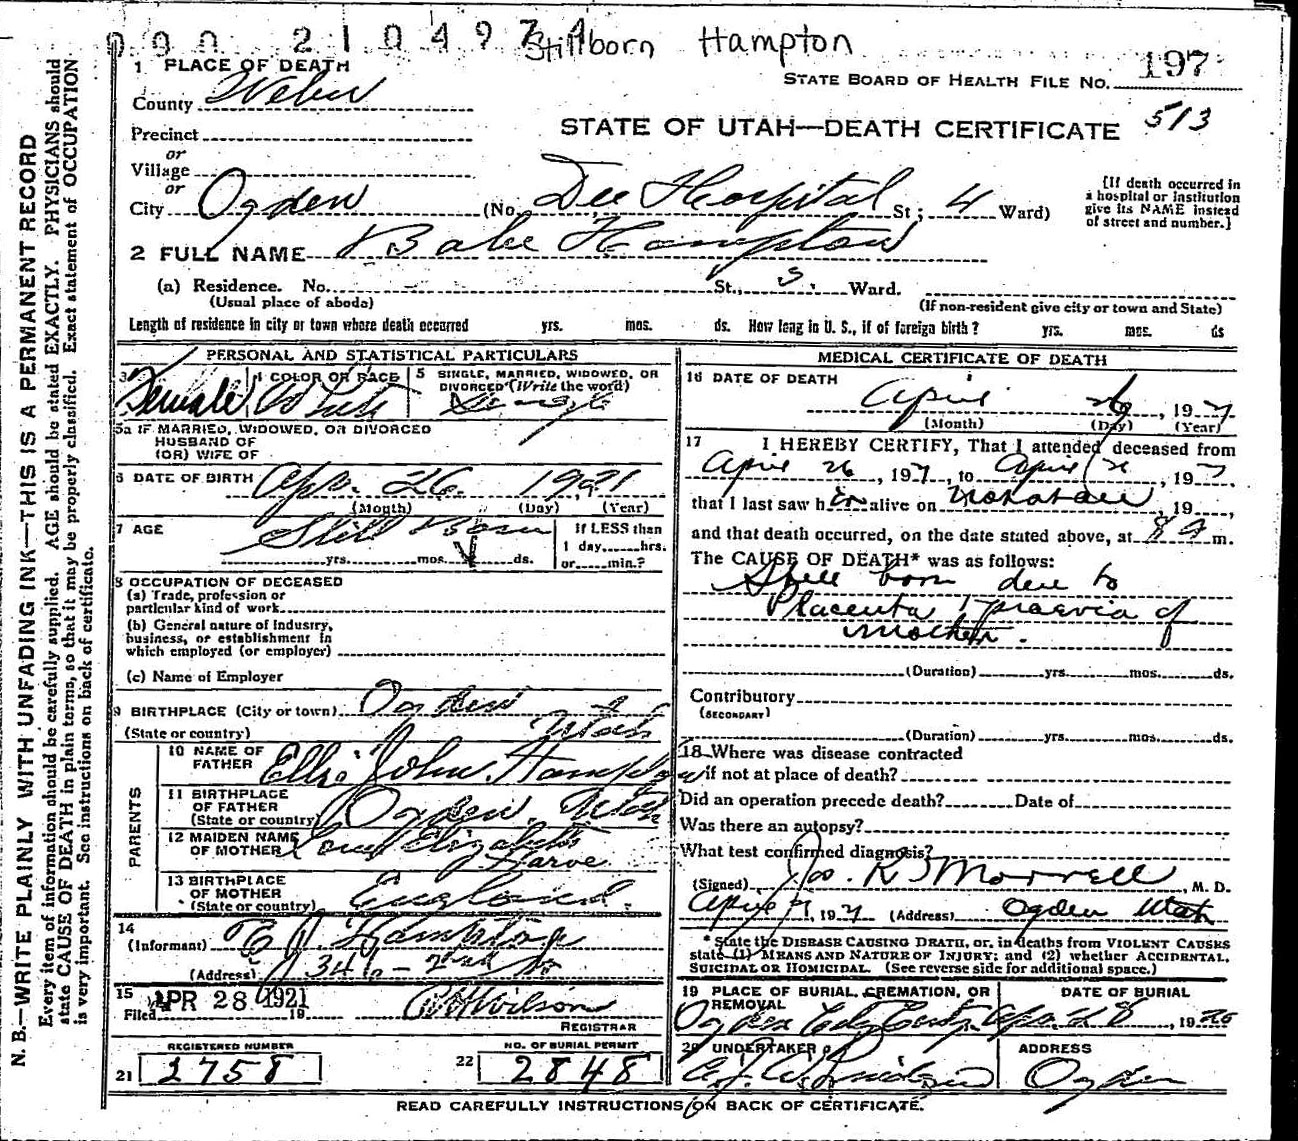 000 210497 Stillborn Hampton
1 PLACE OF DEATH
STATE BOARD OF HEALTH FILE NO. 197
County Weber
STATE OF UTAH—DEATH CERTIFICATE 513
Precinct
or
Village
or
City Ogden (No. Dee Hospital St; 4 Ward)
[If death occurred in
a hospital or institution
give its NAME instead
of street and number.]
2 FULL NAME Babe Hampton
(a) Residence. No. St., 3. Ward.
(Usual place of abode) (If non-resident give city or town and State)
Length of residence in city or town where death occurred yrs. mos. ds. How long in U. S., if of foreign birth? yrs. mos. ds
PERSONAL AND STATISTICAL PARTICULARS
3 Female 4 COLOR OR RACE White 5 SINGLE, MARRIED, WIDOWED, OR
DIVORCED (Write the word)
Single
5a IF MARRIED, WIDOWED, OR DIVORCED
HUSBAND OF
(OR) WIFE OF
6 DATE OF BIRTH Apr. 26. 1921
(Month) (Day) (Year)
7 AGE Still Born If LESS than
1 day, hrs.
yrs. mos. ds. or min.?
8 OCCUPATION OF DECEASED
(a) Trade, profession or
particular kind of work
(b) General nature of industry,
business, or establishment in
which employed (or employer)
(c) Name of Employer
9 BIRTHPLACE (City or town) Ogden
(State or country) Utah
PARENTS
10 NAME OF
FATHER John Hampton
11 BIRTHPLACE
OF FATHER
(State or country) Ogden Utah
12 MAIDEN NAME
OF MOTHER Elizabeth
13 BIRTHPLACE
OF MOTHER
(State or country) England.
14
(Informant) Hampton
(Address)
15 Filed APR 28 1921 19 Wilson
REGISTRAR
REGISTERED NUMBER NO. OF BURIAL PERMIT
21 2758 22 2848
MEDICAL CERTIFICATE OF DEATH
16 DATE OF DEATH
April 26, 192
(Month) (Day) (Year)
17 I HEREBY CERTIFY, That I attended deceased from
April 26, 192, to April 192
that I last saw h er alive on not at all, 19,
and that death occurred, on the date stated above, at 8 a m.
The CAUSE OF DEATH* was as follows:
Still born due to
Placenta praevia of
mother.
(Duration) yrs. mos. ds.
Contributory
(SECONDARY)
(Duration) yrs. mos. ds.
18 Where was disease contracted
if not at place of death?
Did an operation precede death? Date of
Was there an autopsy?
What test confirmed diagnosis?
(Signed) Jos. R. Morrell, M. D.
April 192 (Address) Ogden Utah
* State the DISEASE CAUSING DEATH, or, in deaths from VIOLENT CAUSES
state (1) MEANS AND NATURE OF INJURY; and (2) whether ACCIDENTAL,
SUICIDAL OR HOMICIDAL. (See reverse side for additional space.)
19 PLACE OF BURIAL, CREMATION, OR
REMOVAL DATE OF BURIAL
Ogden City Apr. 28, 19
20 UNDERTAKER ADDRESS
Ogden
READ CAREFULLY INSTRUCTIONS ON BACK OF CERTIFICATE.
N. B.—WRITE PLAINLY WITH UNFADING INK—THIS IS A PERMANENT RECORD
Every item of information should be carefully supplied. AGE should be stated EXACTLY. PHYSICIANS should
state CAUSE OF DEATH in plain terms, so that it may be properly classified. Exact statement of OCCUPATION
is very important. See instructions on back of certificate.